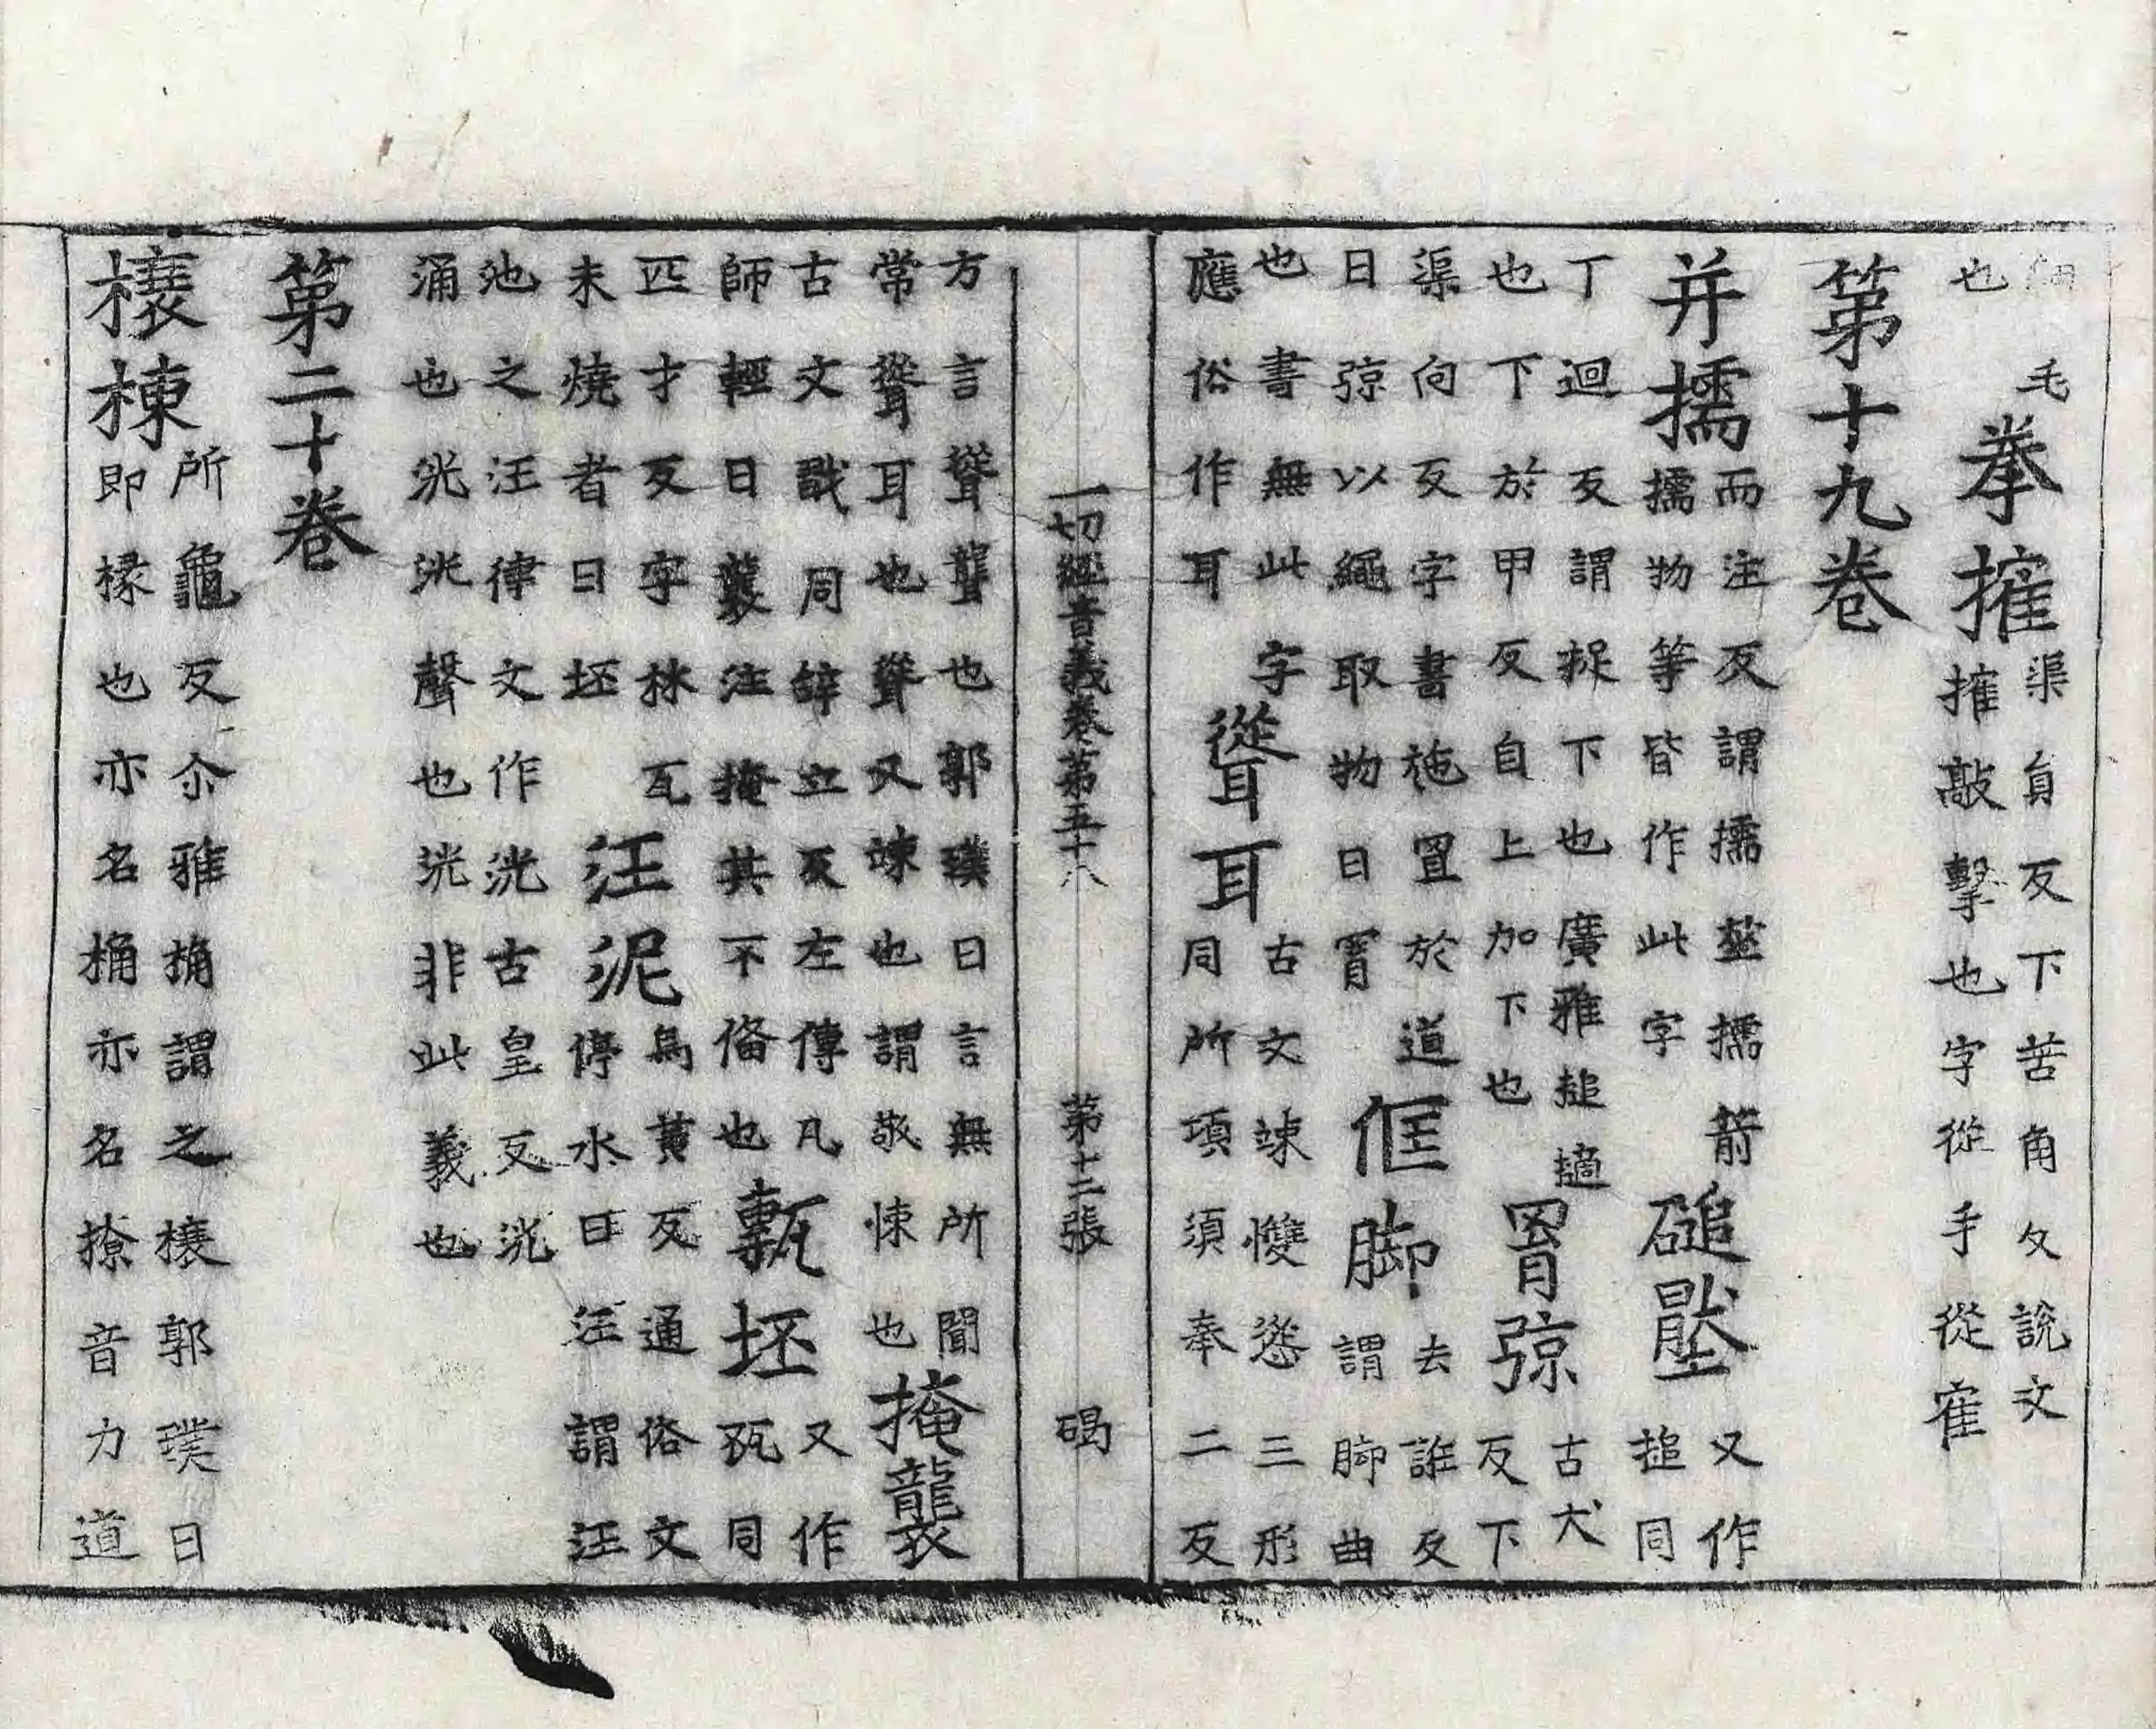 細毛也 拳搉渠員反下苦角反說文搉敲擊也字從手從隺
第十九卷
并擩而注反謂擩莝擩箭擩物等皆作此字 磓壓又作搥同
丁迴反謂捉下也廣雅搥擿也下於甲反自上加下也 罥弶古犬反下
渠向反字書施罝於道曰弶以繩取物曰罥 俇脚去誑反謂脚曲
也書無此字 聳耳古文竦㩳慫三形同所項須奉二反應俗作耳
一切經音義卷第五十八 第十二張 碣
方言聳聾也郭璞曰言無所聞常聳耳也聳又竦也謂敬悚也 掩襲
古文戳同辝立反左傳凡師輕曰襲注掩其不俻也 甎坯又作㼦同
匹才反字林瓦未燒者曰坯 汪泥烏黃反通俗文停水曰汪謂汪
池之汪律文作洸古皇反洸涌也洸洸聲也洸非此義也
第二十卷
榱棟所龜反尒雅桷謂之榱郭璞曰即椽也亦名桷亦名橑音力道